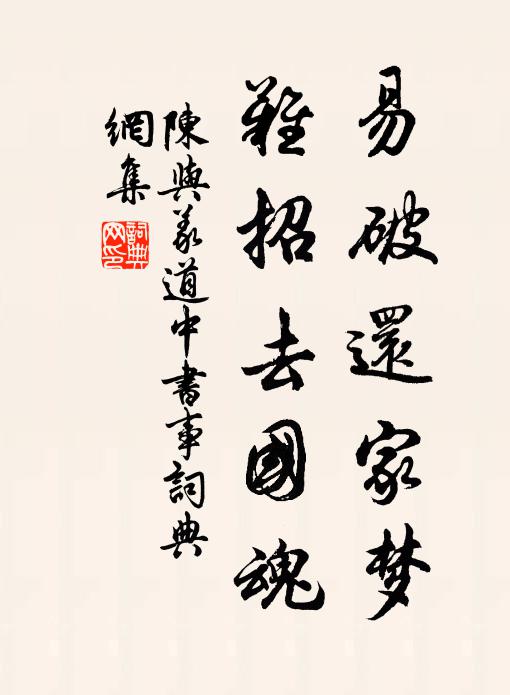 易破還家梦
難招去國魂
陳與義道中書事詞典
網集
詞典
网印